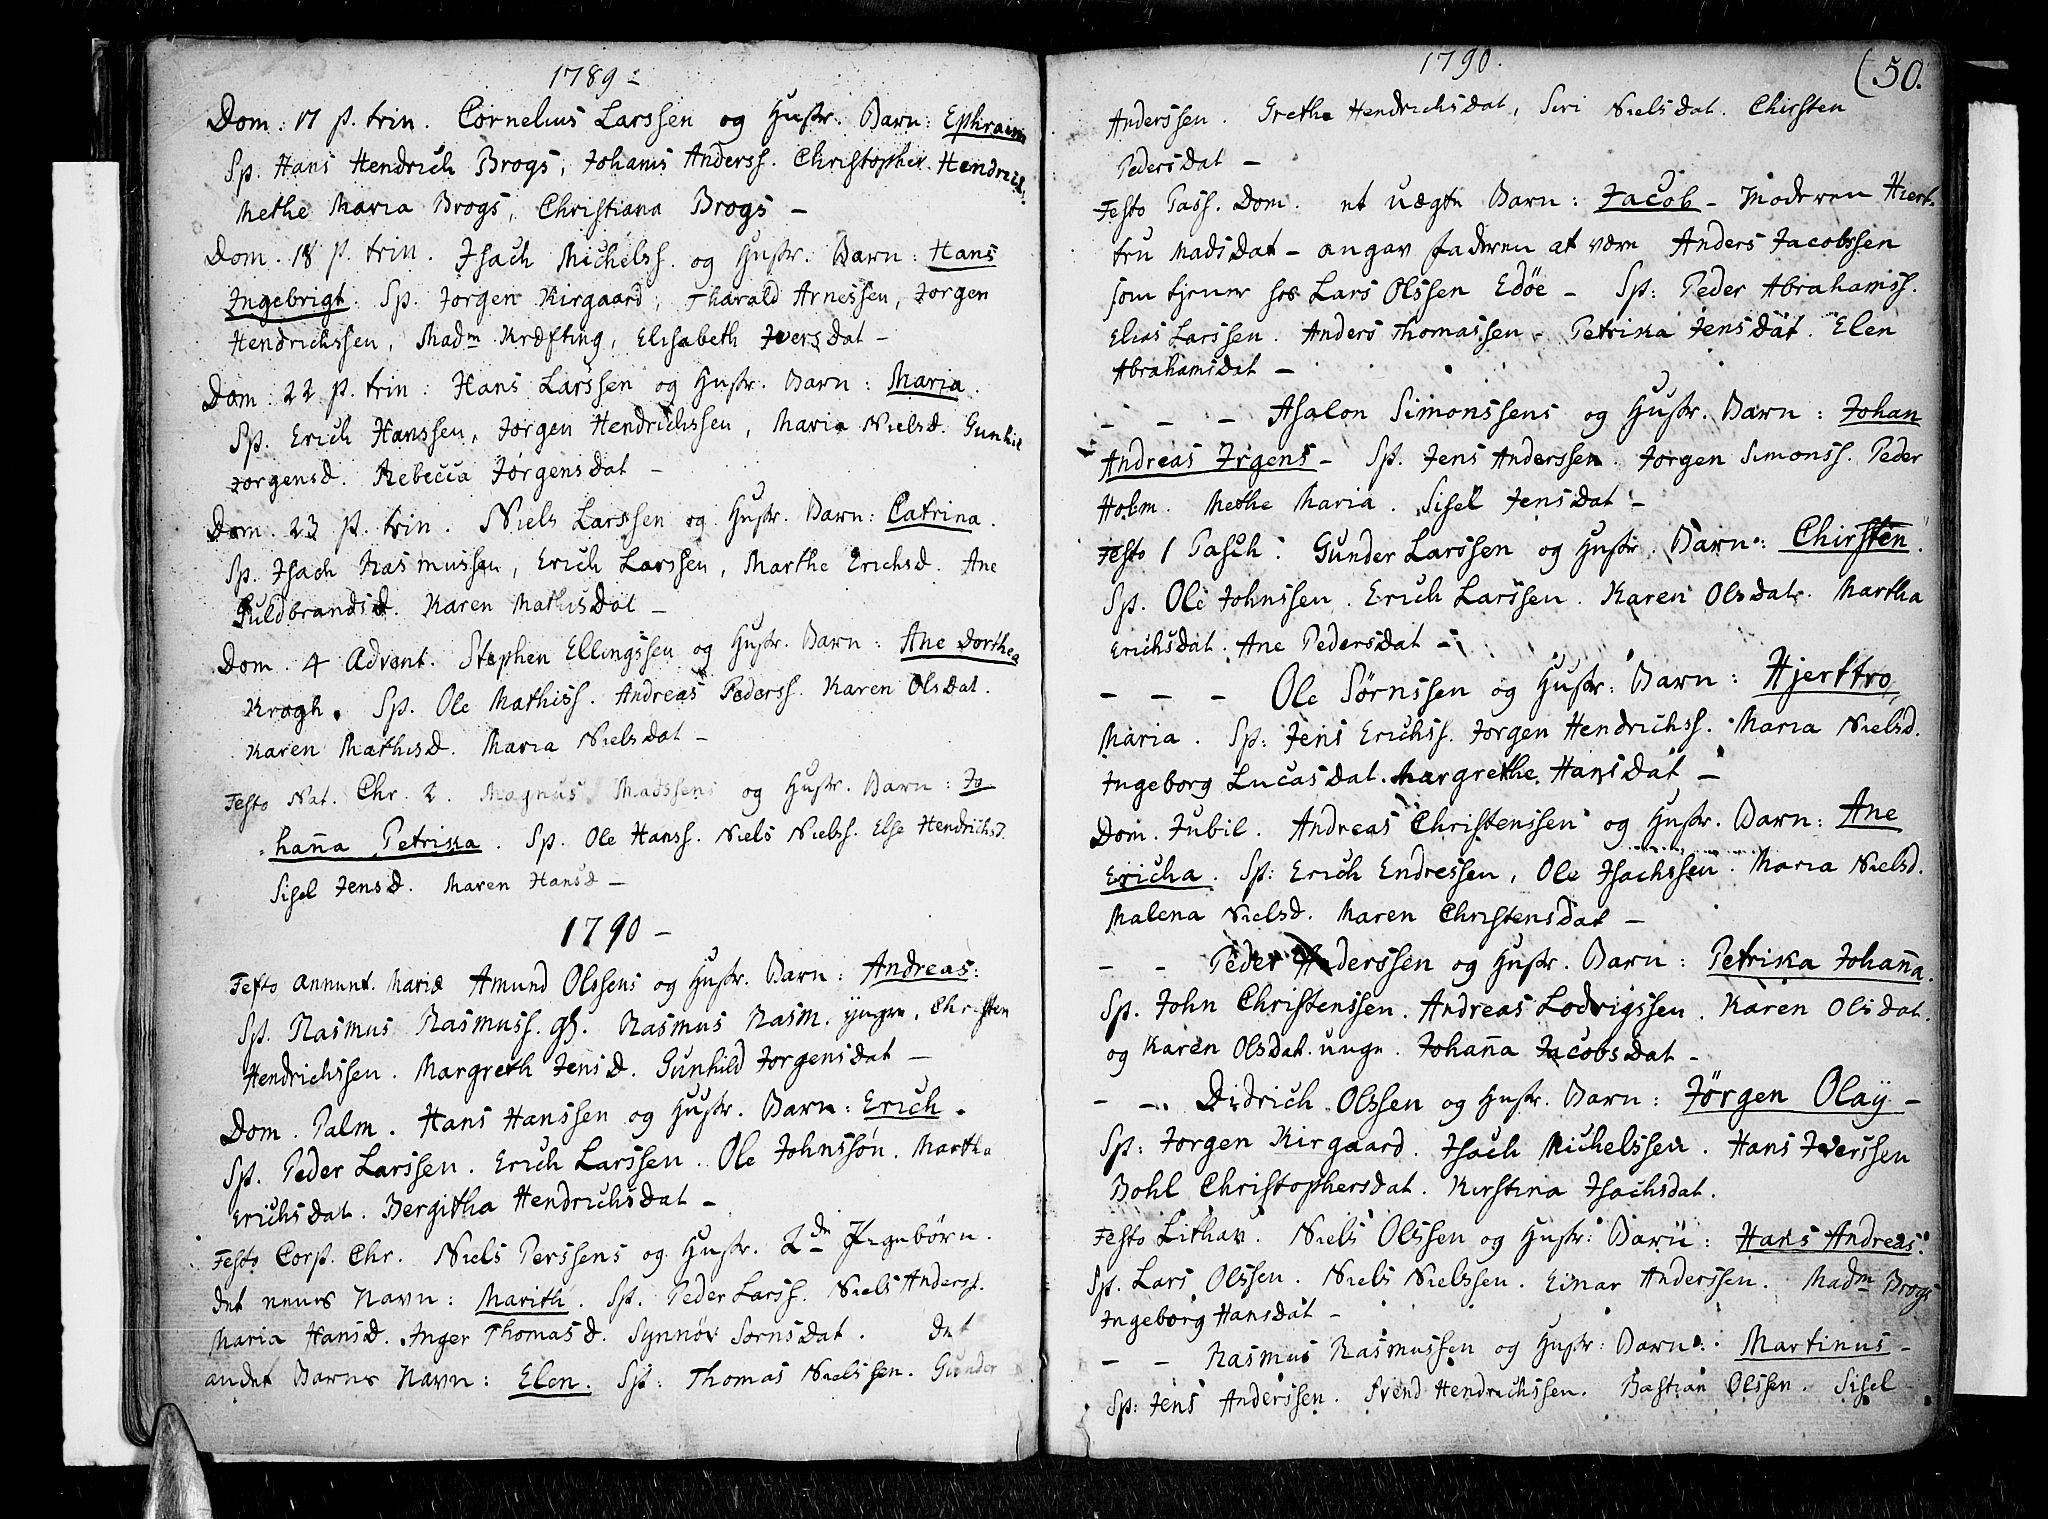 1789 –
Dom: 17 p. trin. Cornelius Larssen og Hustr. Barn: Ephraim
Sp. Hans Hendrich Brogs, Johanis Anderss. Christopher Hendrics.
Methe Maria Brogs, Christiana Brogs –
Dom. 18 p. trin. Isach Michelss. og Hustr. Barn: Hans
Ingebrigt. Sp. Jorgen Kirgaard, Tharald Arnessen, Jorgen
Hendrichssen, Madm Kræfting, Elisabeth Iversdat –
Dom. 22 p. trin: Hans Larssen og Hustr. Barn: Maria.
Sp. Erich Hanssen, Jorgen Hendrichssen, Maria Nielsd. Gunhil
Jorgensd. Rebecca Jørgensdat –
Dom. 23 p. trin. Niels Larssen og Hustr. Barn: Catrina.
Sp. Isach Rasmussen, Erich Larssen, Marthe Erichsd. Ane
Guldbrandsd. Karen Mathisdat –
Dom. 4 Advent. Stephen Ellingssen og Hustr. Barn: Ane Dorthea
Krogh. Sp. Ole Mathiss. Andreas Pederss. Karen Olsdat.
Karen Mathisd. Maria Nielsdat –
Festo Nat. Chr. 2. Magnus Madssens og Hustr. Barn: Jo
hanna Petrika. Sp. Ole Hanss. Niels Nielss. Else Hendrichsd.
Sisel Jensd. Maren Hansd –
1790 –
Festo Annunt. Mariæ Amund Olssens og Hustr. Barn: Andreas:
Sp. Rasmus Rasmuss. Rasmus Rasm. yngre, Christen
Hendrichssen. Margreth Jensd. Gunhild Jorgensdat –
Dom. Palm. Hans Hanssen og Hustr. Barn: Erich.
Sp. Peder Larssen. Erich Larssen. Ole Johnssøn. Martha
Erichsdat. Bergitha Hendrichsdat –
Festo Corp. Chr. Niels Perssens og Hustr. 2de Pigebörn.
det eenes Navn: Marith. Sp. Peder Larss. Niels Anderss.
Maria Hansd. Inger Thomasd. Synnøv Sornsdat. Det
andet Barns Navn: Elen. Sp: Thomas Nielssen. Gunder
1790.
(50.
Anderssen. Grethe Hendrichsdat, Siri Nielsdat. Chirsten
Pedersdat –
Festo Pass. Dom. et uægte Barn: Jacob – Moderen Hiert-
tru Madsdat – angav faderen at være Anders Jacobssen
som tjener hos Lars Olssen Edöe – Sp: Peder Abrahamss.
Elias Larssen. Anders Thomassen – Petrika Jensdat. Elen
Abrahamsdat –
– – – Asalon Simonssens og Hustr. Barn: Johan
Andreas Irgens – Sp. Jens Anderssen. Jorgen Simonss. Peder
Holm. Methe Maria. Sisel Jensdat –
Festo 1 Pasch: Gunder Larssen og Hustr. Barn: Chirsten.
Sp. Ole Johnssen. Erich Larssen. Karen Olsdat. Martha
Erichsdat. Ane Pedersdat –
– – – Ole Sörnssen og Hustr: Barn: Hjerttro
Maria. Sp: Jens Erichss. Jorgen Hendrichss. Maria Nielsd.
Ingeborg Lucasdat. Margrethe Hansdat –
Dom. Jubil. Andreas Christenssen og Hustr. Barn: Ane
Ericha. Sp: Erich Endressen, Ole Isachssen. Maria Nielsd.
Malena Nielsd. Maren Christensdat –
– – Peder Anderssen og Hustr. Barn: Petrika Johanna.
Sp. John Christenssen. Andreas Lodvigssen. Karen Olsdat.
og Karen Olsdat. unge. Johanna Jacobsdat –
– – Didrich Olssen og Hustr. Barn: Jörgen Olaÿ –
Sp: Jorgen Kirgaard. Isach Michelssen. Hans Iverssen
Bohl Christophersdat. Kirstina Isachsdat.
Festo Lithav. Niels Olssen og Hustr: Barn: Hans Andreas:
Sp. Lars Olssen. Niels Nielssen. Einar Anderssen. Madm Brogs
Ingeborg Hansdat –
– – Rasmus Rasmussen og Hustr: Barn: Martinus –
Sp: Jens Anderssen. Svend Hendrichssen. Bastian Olssen. Sisel